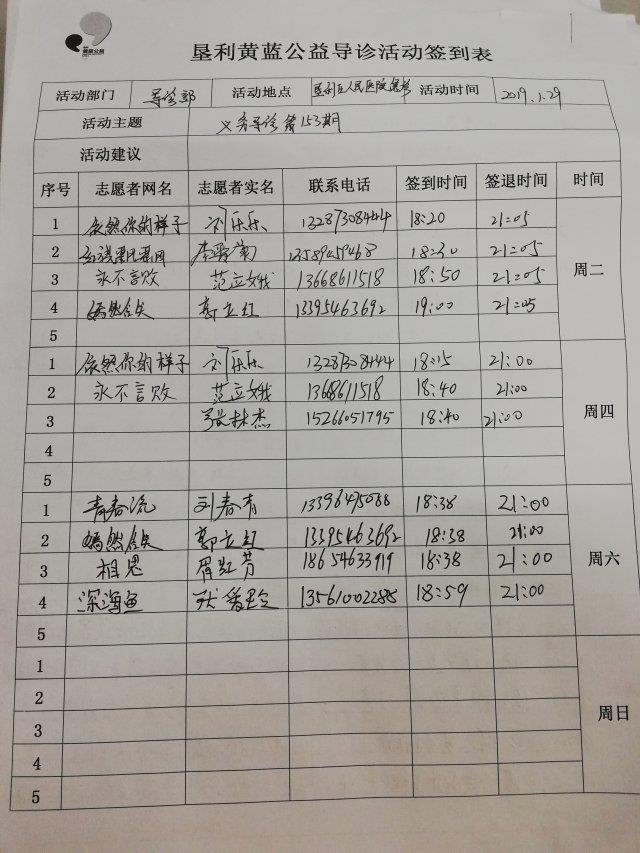 黄蓝公益
垦利黄蓝公益导诊活动签到表
活动部门 导诊部 活动地点 垦利区人民医院 活动时间 2019.1.29
活动主题 义务导诊第153期
活动建议
序号 志愿者网名 志愿者实名 联系电话 签到时间 签退时间 时间
1 依然你的样子 刘乐乐 13287308444 18:20 21:05
2 13589459468 18:30 21:05
3 永不言败 范立娥 13668611518 18:50 21:05
4 嫣然含笑 郭立红 13395463692 19:00 21:05
5
周二
1 依然你的样子 刘乐乐 13287308444 18:15 21:00
2 永不言败 范立娥 13668611518 18:40 21:00
3 张林杰 15266051795 18:40 21:00
4
5
周四
1 青春流 刘春青 18:38 21:00
2 嫣然含笑 郭立红 13395463692 18:38 21:00
3 相思 18654633919 18:38 21:00
4 深海鱼 18:59 21:00
5
周六
1
2
3
4
5
周日